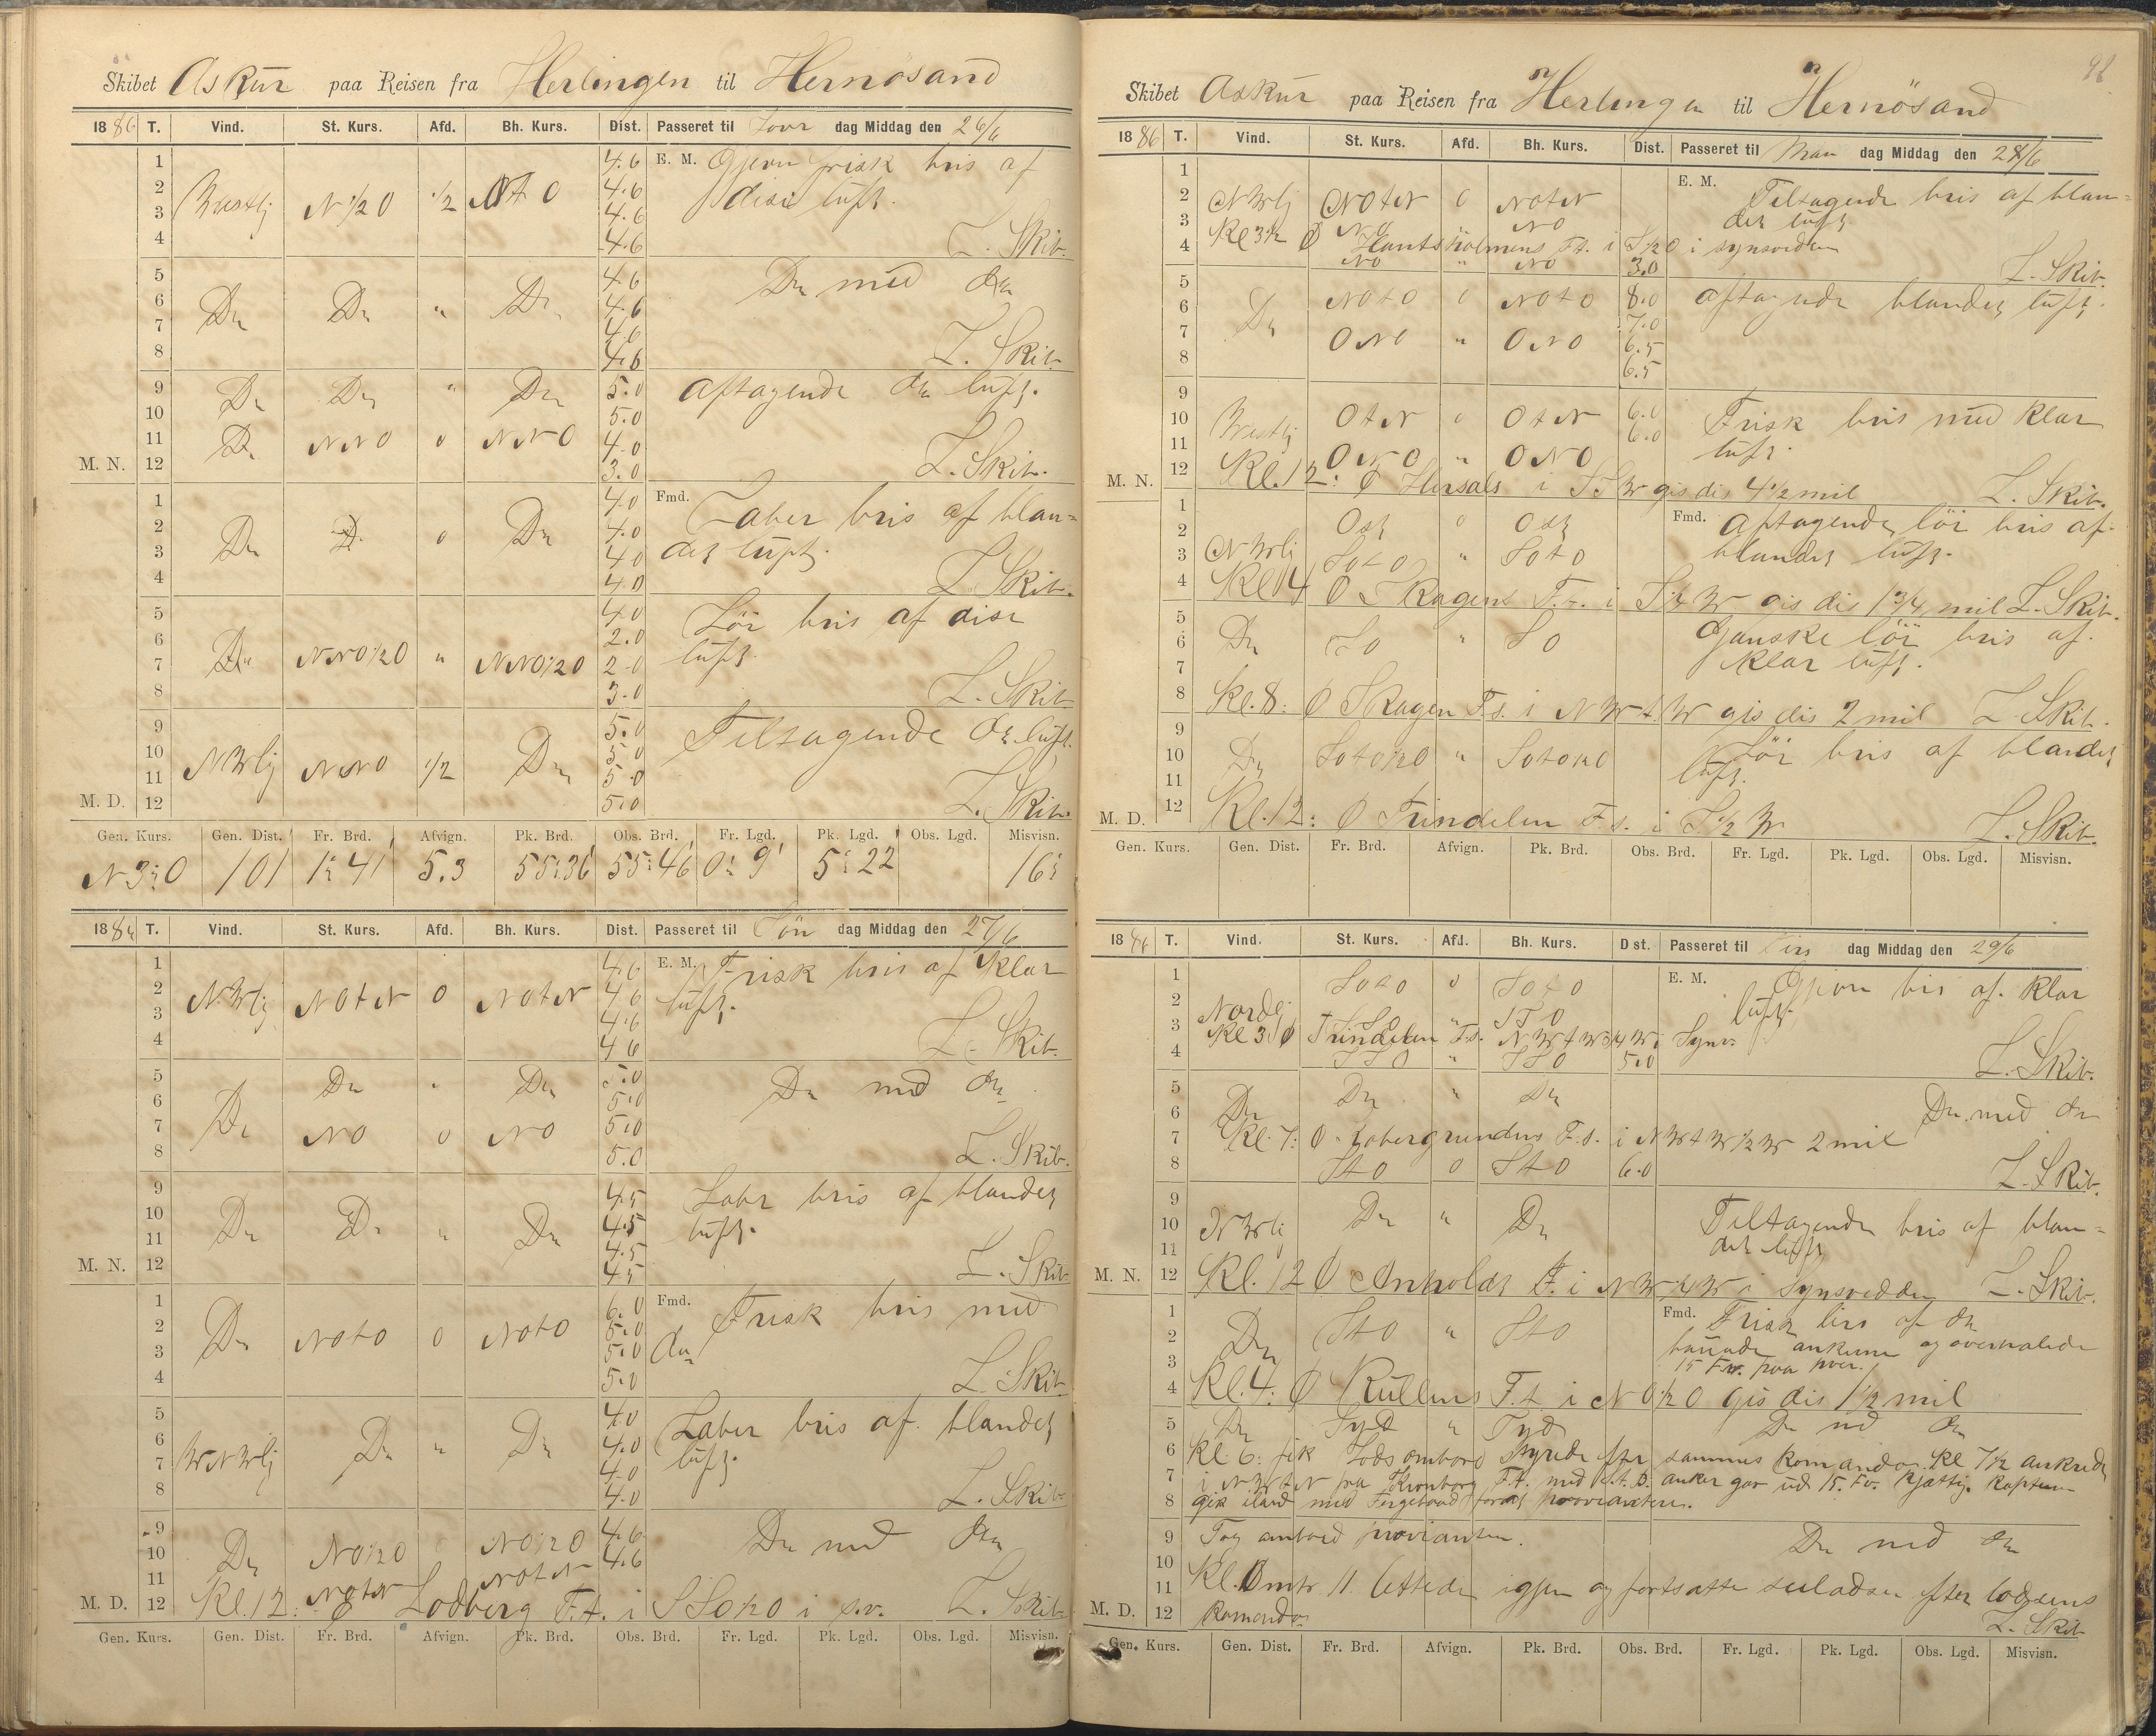 Skibet Askur paa Reisen fra Herlingen til Hernösand
1886 T. Vind. St. Kurs. Afd. Bh. Kurs. Dist. Passeret til Lövr dag Middag den 26/6
1 4.6 E. M. Gjevn frisk bris af
2 Vestlj N 1/2 O 1/2 N t O 4.6 dise luft.
3 4.6
4 4.6 L. Skib.
5 4.6 Do med do
6 Do Do " Do 4.6
7 4.6
8 4.6 L. Skib.
9 Do Do " Do 5.0 aftagende do luft.
10 5.0
11 Do NNO 0 NNO 4.0
M. N. 12 3.0 L. Skib.
1 4.0 Fmd. Laber bris af blan=
2 Do D. 0 Do 4.0 det luft.
3 4.0
4 4.0 L. Skib.
5 4.0 Lör bris af dise
6 2.0 luft.
7 Do NNO 1/2 O " NNO 1/2 O 2.0
8 3.0 L. Skib.
9 5.0 Tiltagende do luft.
10 NWlj NNO 1/2 Do 5.0
11 5.0
M. D. 12 5.0 L. Skib.
Gen. Kurs. Gen. Dist. Fr. Brd. Afvign. Pk. Brd. Obs. Brd. Fr. Lgd. Pk. Lgd. Obs. Lgd. Misvisn.
N 3° O 101 1° 41' 5.3 55° 36' 55° 46' 0° 9' 5° 22 16°
1886 T. Vind. St. Kurs. Afd. Bh. Kurs. Dist. Passeret til Sön dag Middag den 27/6
1 4.6 E. M. Frisk bris af klar
2 NWlj NOtN 0 NOtN 4.6 luft.
3 4.6
4 4.6 L. Skib.
5 Do " Do 5.0 Do med do
6 5.0
7 Do NO 0 NO 5.0
8 5.0 L. Skib.
9 4.5 Labr bris af blandet
10 Do Do " Do 4.5 luft.
11 4.5
M. N. 12 4.5 L. Skib
1 6.0 Fmd. Frisk bris med
2 Do NOtO 0 NOtO 5.0 do
3 5.0
4 5.0 L. Skib
5 4.0 Laber bris af blandet
6 WNWlj Do " Do 4.0 luft.
7 4.0
8 4.0 L. Skib
9 NO 1/2 O NO 1/2 O 4.6 Do med do
10 Do 4.6
11 NOtN NOtN
M. D. 12 Kl. 12: Ø Lodberg F.t. i SSO 1/2 O i s.v. L. Skib
Gen. Kurs. Gen. Dist. Fr. Brd. Afvign. Pk. Brd. Obs. Brd. Fr. Lgd. Pk. Lgd. Obs. Lgd. Misvisn.
98
Skibet Askur paa Reisen fra Herlingen til Hernösand
1886 T. Vind. St. Kurs. Afd. Bh. Kurs. Dist. Passeret til Man dag Middag den 28/6
1 E. M. Tiltagende bris af blan=
2 NWlj NOtN 0 NOtN det luft
3 NO NO
4 Kl 3 1/2 Ø Hantsholmens F.t. i S 1/2 O i synsvidden
NO " NO 3.0 L. Skib.
5 NOtO 0 NOtO 8.0 aftagende blandet luft.
6 Do 7.0
7 ONO " ONO 6.5
8 6.5
9 OtN 0 OtN 6.0 Frisk bris med klar
10 Vestlj 6.0 luft.
11 ONO " ONO
M. N. 12 Kl. 12: Ø Hirsals i SSW gis dis 4 1/2 mil L. Skib.
1 Ost 0 Ost Fmd. Aftagende lör bris af
2 blandet luft.
3 NWlj SOtO " SOtO
4 Kl 4 Ø Skagens F.t. i S 1/4 W gis dis 1 3/4 mil L. Skib.
5 Ganske lör bris af
6 Do SO " SO klar luft.
7
8 Kl. 8: Ø Skagen F.s. i NWtW gis dis 2 mil L. Skib.
9 Lör bris af blandet
10 Do SOtO 1/2 O " SOtO 1/2 O luft.
11
M. D. 12 Kl. 12: Ø Trindelen F.s. i S 1/2 W L. Skib.
Gen. Kurs. Gen. Dist. Fr. Brd. Afvign. Pk. Brd. Obs. Brd. Fr. Lgd. Pk. Lgd. Obs. Lgd. Misvisn.
1886 T. Vind. St. Kurs. Afd. Bh. Kurs. Dist. Passeret til Tirs dag Middag den 29/6
1 SOtO 0 SOtO E. M. Gjevn bris af klar
2 Nordlj SSO " SSO luft.
3 Kl 3 Ø Trindelen F.s. NWtW 3/4 W i Syns
4 SSO " SSO 5.0 L. Skib.
5 Do " Do
6 Do Do med do
7 Kl. 7: Ø Kobergrundens F.s. i NWtW 1/2 W 2 mil
8 StO 0 StO 6.0 L. Skib.
9 Tiltagende bris af blan=
10 NWlj Do " Do det luft
11
M. N. 12 Kl. 12 Ø Anholdt F. i NW 1/4 W i Synsvidden L. Skib.
1 Fmd. Frisk bris af do
2 Do StO " StO ankerne og overhalede
3 15 Fv. paa hver.
4 Kl. 4: Ø Kullens F.t. i NO 1/2 O gis dis 1 1/2 mil
5 Do Syd " Syd Do med do
6 Kl 6: fik Lods ombord styrede efter sammes komando. Kl 7 1/2 ankrede
7 i NWtN fra Kronborg F.t. med st. B. anker gav ud 15. Fv. kjætting. kaptein
8 gik iland med Fergebaad forat proviantere.
9 Tog ombord provianten. Do med do
10
11 Kl. 11. lettede igjen og fortsatte seiladsen efter lodsens
M. D. 12 Komando. L. Skib
Gen. Kurs. Gen. Dist. Fr. Brd. Afvign. Pk. Brd. Obs. Brd. Fr. Lgd. Pk. Lgd. Obs. Lgd. Misvisn.